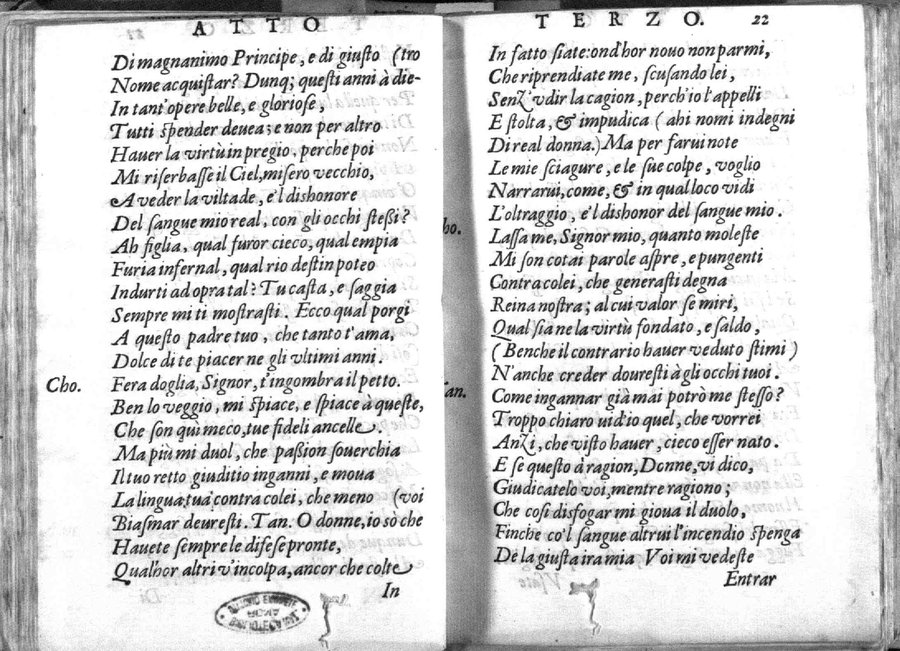 ATTO
Di magnanimo Principe, e di giusto (tro
Nome acquistar? Dunq; questi anni à die-
In tant'opere belle, e gloriose,
Tutti spender deuea; e non per altro
Hauer la virtù in pregio, perche poi
Mi riserbasse il Ciel, misero vecchio,
A veder la viltade, e'l dishonore
Del sangue mio real, con gli occhi stessi?
Ah figlia, qual furor cieco, qual empia
Furia infernal, qual rio destin poteo
Indurti ad opra tal? Tu casta, e saggia
Sempre mi ti mostrasti. Ecco qual porgi
A questo padre tuo, che tanto t'ama,
Dolce di te piacer ne gli vltimi anni.
Cho. Fera doglia, Signor, t'ingombra il petto.
Ben lo veggio, mi spiace, e spiace à queste,
Che son qui meco, tue fideli ancelle.
Ma più mi duol, che passion souerchia
Il tuo retto giuditio inganni, e moua
La lingua tua contra colei, che meno (voi
Biasmar deuresti. Tan. O donne, io sò che
Hauete sempre le difese pronte,
Qualhor altri v'incolpa, ancor che colte
In
TERZO. 22
In fatto siate: ond'hor nouo non parmi,
Che riprendiate me, scusando lei,
Senz'vdir la cagion, perch'io l'appelli
E stolta, & impudica (ahi nomi indegni
Di real donna.) Ma per farui note
Le mie sciagure, e le sue colpe, voglio
Narrarui, come, & in qual loco vidi
L'oltraggio, e'l dishonor del sangue mio.
ho. Lassa me, Signor mio, quanto moleste
Mi son cotai parole aspre, e pungenti
Contra colei, che generasti degna
Reina nostra; al cui valor se miri,
Qual sia ne la virtù fondato, e saldo,
(Benche il contrario hauer veduto stimi)
N'anche creder douresti à gli occhi tuoi.
an. Come ingannar già mai potrò me stesso?
Troppo chiaro vid'io quel, che vorrei
Anzi, che visto hauer, cieco esser nato.
E se questo à ragion, Donne, vi dico,
Giudicatelo voi, mentre ragiono;
Che così disfogar mi gioua il duolo,
Finche co'l sangue altrui l'incendio spenga
De la giusta ira mia Voi mi vedeste
Entrar